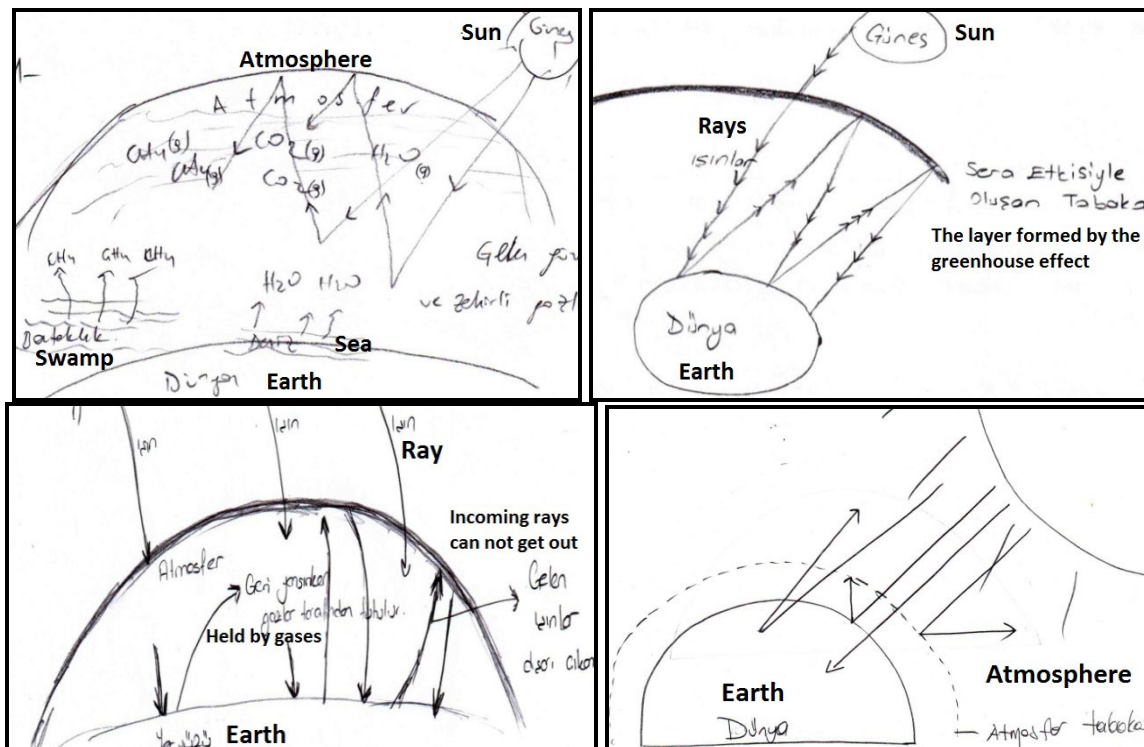 Sun
Güneş
Atmosphere
Atmosfer
CH4(g)
CO2(g)
H2O(g)
CH4(g)
CO2(g)
CH4 CH4 CH4
H2O H2O
Gelen
ve zehirli gazl
Bataklık
Swamp
Deniz
Sea
Dünya
Earth
Güneş
Sun
Rays
ışınlar
Sera Etkisiyle
Oluşan Tabaka
The layer formed by the
greenhouse effect
Dünya
Earth
1)
ışın
ışın
ışın
Ray
Incoming rays
can not get out
Atmosfer
Geri yansınlar
gazlar tarafından tutulur.
Held by gases
Gelen
ışınlar
dışarı çıkam
Yeryüzü
Earth
Earth
Dünya
Atmosphere
Atmosfer tabaka